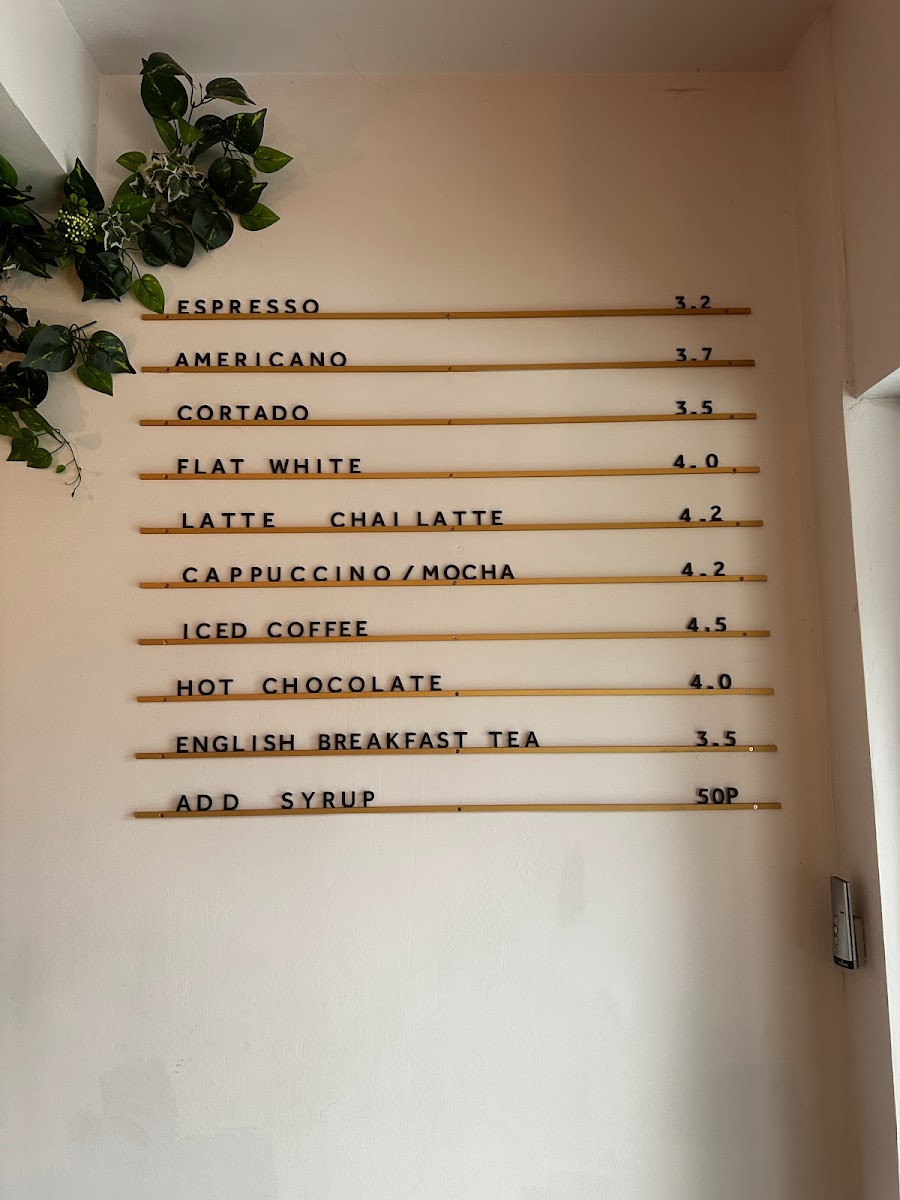 ESPRESSO 3.2
AMERICANO 3.7
CORTADO 3.5
FLAT WHITE 4.0
LATTE CHAI LATTE 4.2
CAPPUCCINO/MOCHA 4.2
ICED COFFEE 4.5
HOT CHOCOLATE 4.0
ENGLISH BREAKFAST TEA 3.5
ADD SYRUP 50P